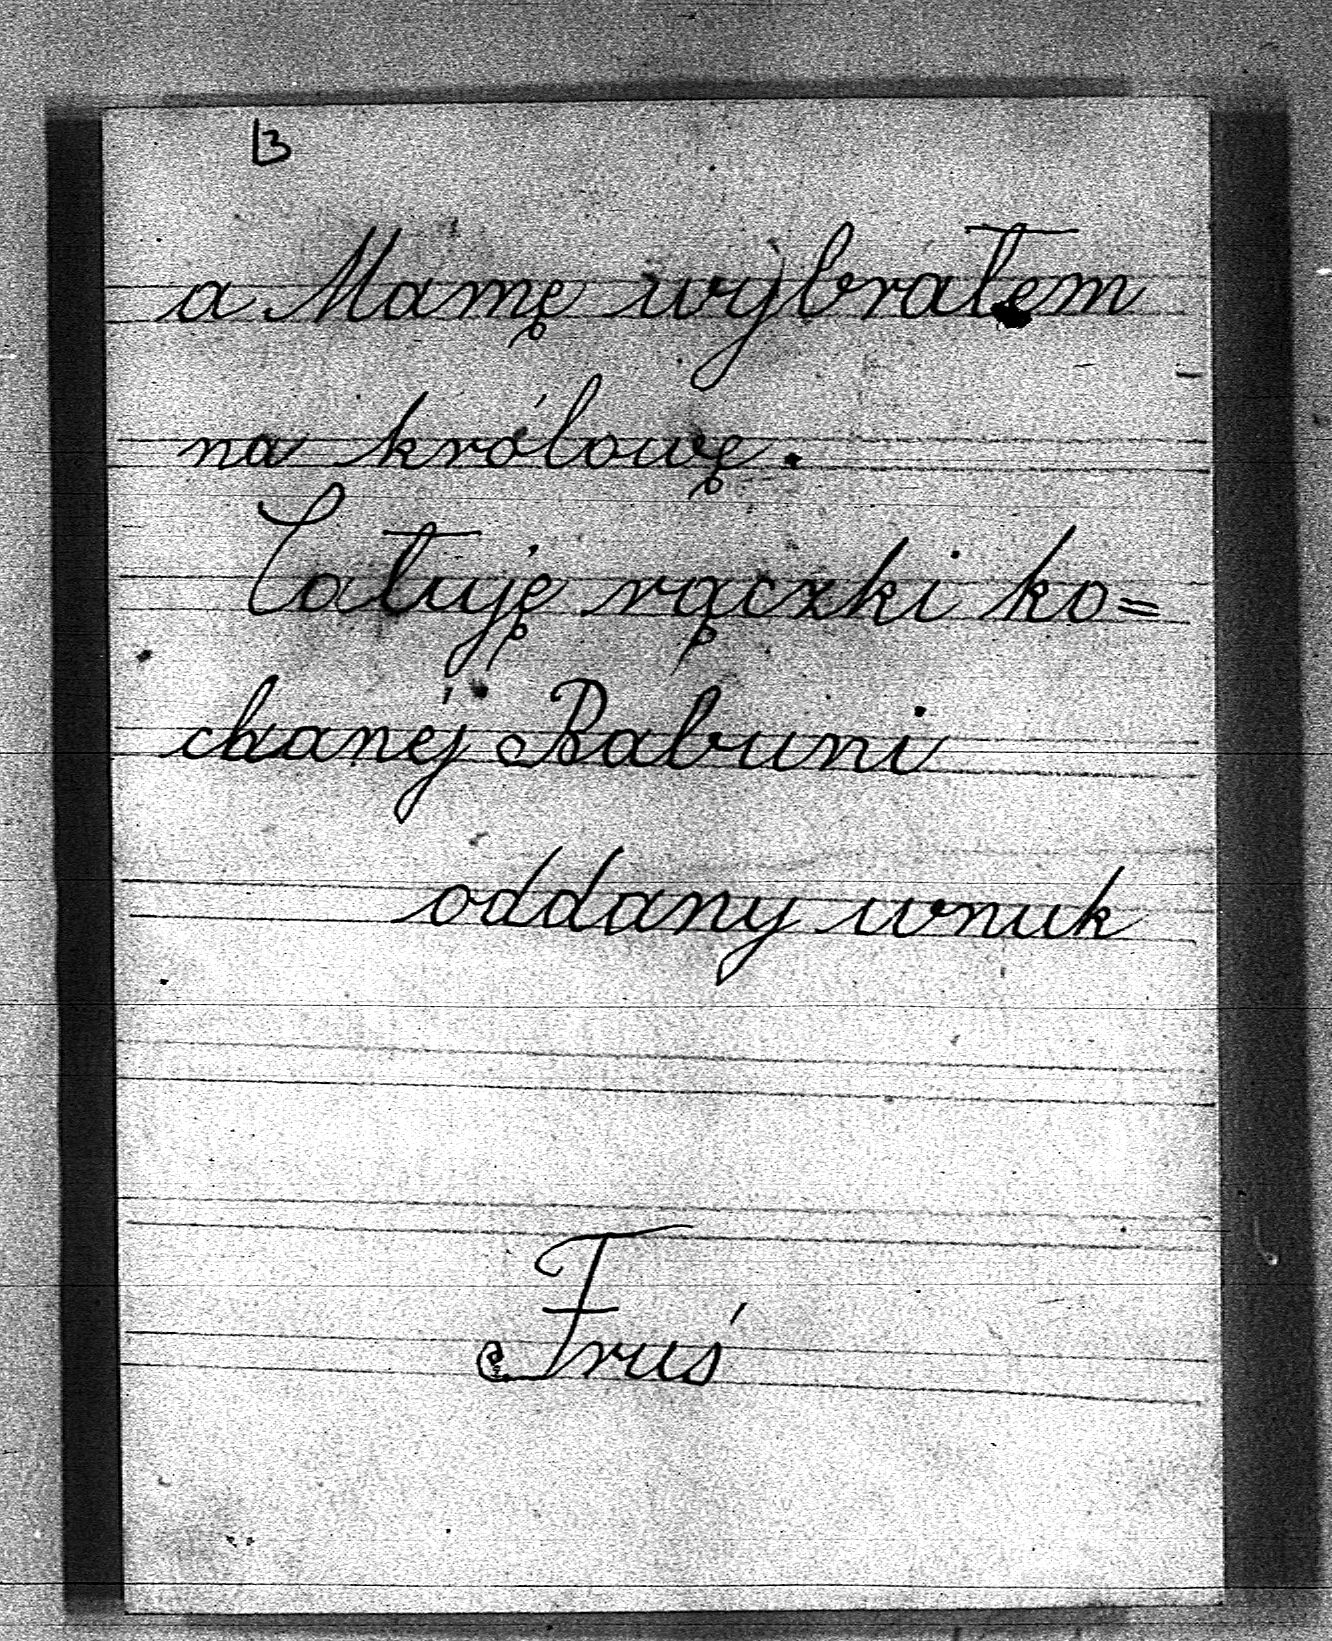 13
a Mamę wybrałem
na królowę.
Całuję rączki ko=
chanéj Babuni
oddany wnuk
Fruś